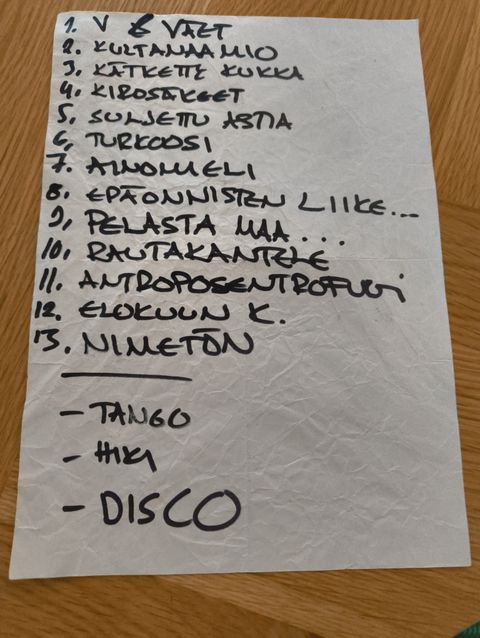 1. V & VÄET
2. KULTANAAMIO
3. KÄTKETTY KUKKA
4. KIROSÄKEET
5. SULJETTU ASTIA
6. TURKOOSI
7. AINOMIELI
8. EPÄONNISTEN LIIKE...
9. PELASTA MAA...
10. RAUTAKANTELE
11. ANTROPOSENTROFUGI
12. ELOKUUN K.
13. NIMETÖN
- TANGO
- HIKI
- DISCO